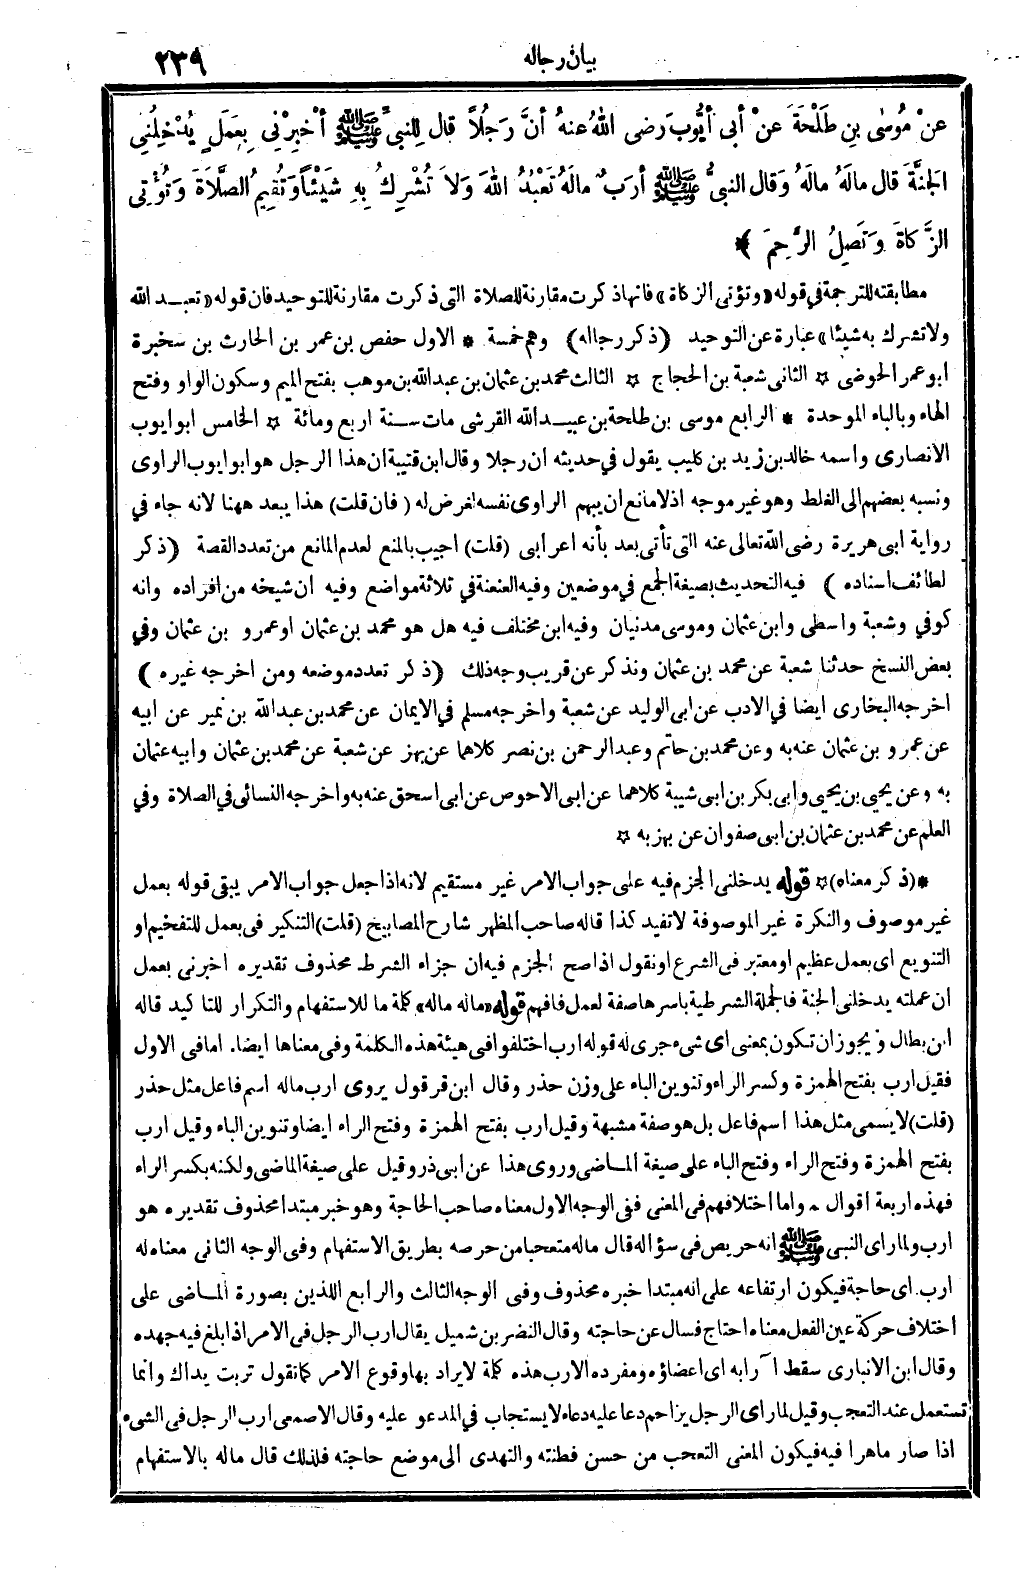 بيان رجاله
٢٣٩
عنْ مُوسٰى بنِ طَلْحَةَ عنْ أبى أيُّوبَ رضى اللهُ عنهُ أنَّ رَجُلاً قال لِلنبىِّ ﷺ أخْبِرْنِى بِعَمَلٍ يُدْخِلُنِى
الجَنَّةَ قال مالَهُ مالَهُ وَقال النبىُّ ﷺ أرَبٌ مالَهُ تَعْبُدُ اللهَ وَلاَ تُشْرِكُ بِهِ شَيْئاً وَتُقِيمُ الصَّلاَةَ وَتُؤْتِى
الزَّكاةَ وَتَصِلُ الرَّحِمَ ﴾
مطابقته للترجمة في قوله «وتؤتى الزكاة» فانها ذكرت مقارنة للصلاة التى ذكرت مقارنة للتوحيد فان قوله «تعبد الله
ولا تشرك به شيئا» عبارة عن التوحيد (ذكر رجاله) وهم خمسة * الاول حفص بن عمر بن الحارث بن سخبرة
ابو عمر الحوضى ☆ الثانى شعبة بن الحجاج ☆ الثالث محمد بن عثمان بن عبدالله بن موهب بفتح الميم وسكون الواو وفتح
الهاء وبالباء الموحدة * الرابع موسى بن طلحة بن عبيد الله القرشى مات سنة اربع ومائة ☆ الخامس ابو ايوب
الانصارى واسمه خالد بن زيد بن كليب يقول في حديثه ان رجلا وقال ابن قتيبة ان هذا الرجل هو ابو ايوب الراوى
ونسبه بعضهم الى الغلط وهو غير موجه اذ لا مانع ان يبهم الراوى نفسه لغرض له (فان قلت) هذا يبعد ههنا لانه جاء في
رواية ابى هريرة رضى الله تعالى عنه التى تأتى بعد بأنه اعرابى (قلت) اجيب بالمنع لعدم المانع من تعدد القصة (ذكر
لطائف اسناده) فيه التحديث بصيغة الجمع في موضعين وفيه العنعنة في ثلاثة مواضع وفيه ان شيخه من افراده وانه
كوفي وشعبة واسطى وابن عثمان وموسى مدنيان وفيه ابن مختلف فيه هل هو محمد بن عثمان او عمرو بن عثمان وفي
بعض النسخ حدثنا شعبة عن محمد بن عثمان ونذكر عن قريب وجه ذلك (ذكر تعدد موضعه ومن اخرجه غيره)
اخرجه البخارى ايضا في الادب عن ابى الوليد عن شعبة واخرجه مسلم في الايمان عن محمد بن عبدالله بن نمير عن ابيه
عن عمرو بن عثمان عنه به وعن محمد بن حاتم وعبد الرحمن بن نصر كلاهما عن بهز عن شعبة عن محمد بن عثمان وابيه عثمان
به وعن يحيى بن يحيى وابى بكر بن ابى شيبة كلاهما عن ابى الاحوص عن ابى اسحق عنه به واخرجه النسائى في الصلاة وفي
العلم عن محمد بن عثمان بن ابى صفوان عن بهز به ☆
*(ذكر معناه)☆ قوله يدخلنى الجزم فيه على جواب الامر غير مستقيم لانه اذا جعل جواب الامر يبقى قوله بعمل
غير موصوف والنكرة غير الموصوفة لا تفيد كذا قاله صاحب المظهر شارح المصابيح (قلت) التنكير فى بعمل للتفخيم او
التنويع اى بعمل عظيم او معتبر فى الشرع او نقول اذا صح الجزم فيه ان جزاء الشرط محذوف تقديره اخبرنى بعمل
ان عملته يدخلنى الجنة فالجملة الشرطية باسرها صفة لعمل فافهم قوله «ماله ماله» كلمة ما للاستفهام والتكرار للتا كيد قاله
ابن بطال ويجوز ان تكون بمعنى اى شىء جرى له قوله ارب اختلفوا فى هيئة هذه الكلمة وفى معناها ايضا. اما فى الاول
فقيل ارب بفتح الهمزة وكسر الراء وتنوين الباء على وزن حذر وقال ابن قرقول يروى ارب ماله اسم فاعل مثل حذر
(قلت) لا يسمى مثل هذا اسم فاعل بل هو صفة مشبهة وقيل ارب بفتح الهمزة وفتح الراء ايضا وتنوين الباء وقيل ارب
بفتح الهمزة وفتح الراء وفتح الباء على صيغة الماضى وروى هذا عن ابى ذر وقيل على صيغة الماضى ولكنه بكسر الراء
فهذه اربعة اقوال * واما اختلافهم فى المعنى ففى الوجه الاول معناه صاحب الحاجة وهو خبر مبتدا محذوف تقديره هو
ارب ولما راى النبى ﷺ انه حريص فى سؤاله قال ماله متعجبا من حرصه بطريق الاستفهام وفى الوجه الثانى معناه له
ارب اى حاجة فيكون ارتفاعه على انه مبتدا خبره محذوف وفى الوجه الثالث والرابع اللذين بصورة الماضى على
اختلاف حركة عين الفعل معناه احتاج فسال عن حاجته وقال النضر بن شميل يقال ارب الرجل فى الامر اذا بلغ فيه جهده
وقال ابن الانبارى سقط آرابه اى اعضاؤه ومفرده الارب هذه كلمة لا يراد بها وقوع الامر كما تقول تربت يداك وانما
تستعمل عند التعجب وقيل لما راى الرجل يزاحم دعا عليه دعاء لا يستجاب في المدعو عليه وقال الاصمعى ارب الرجل فى الشىء
اذا صار ماهرا فيه فيكون المعنى التعجب من حسن فطنته والتهدى الى موضع حاجته فلذلك قال ماله بالاستفهام